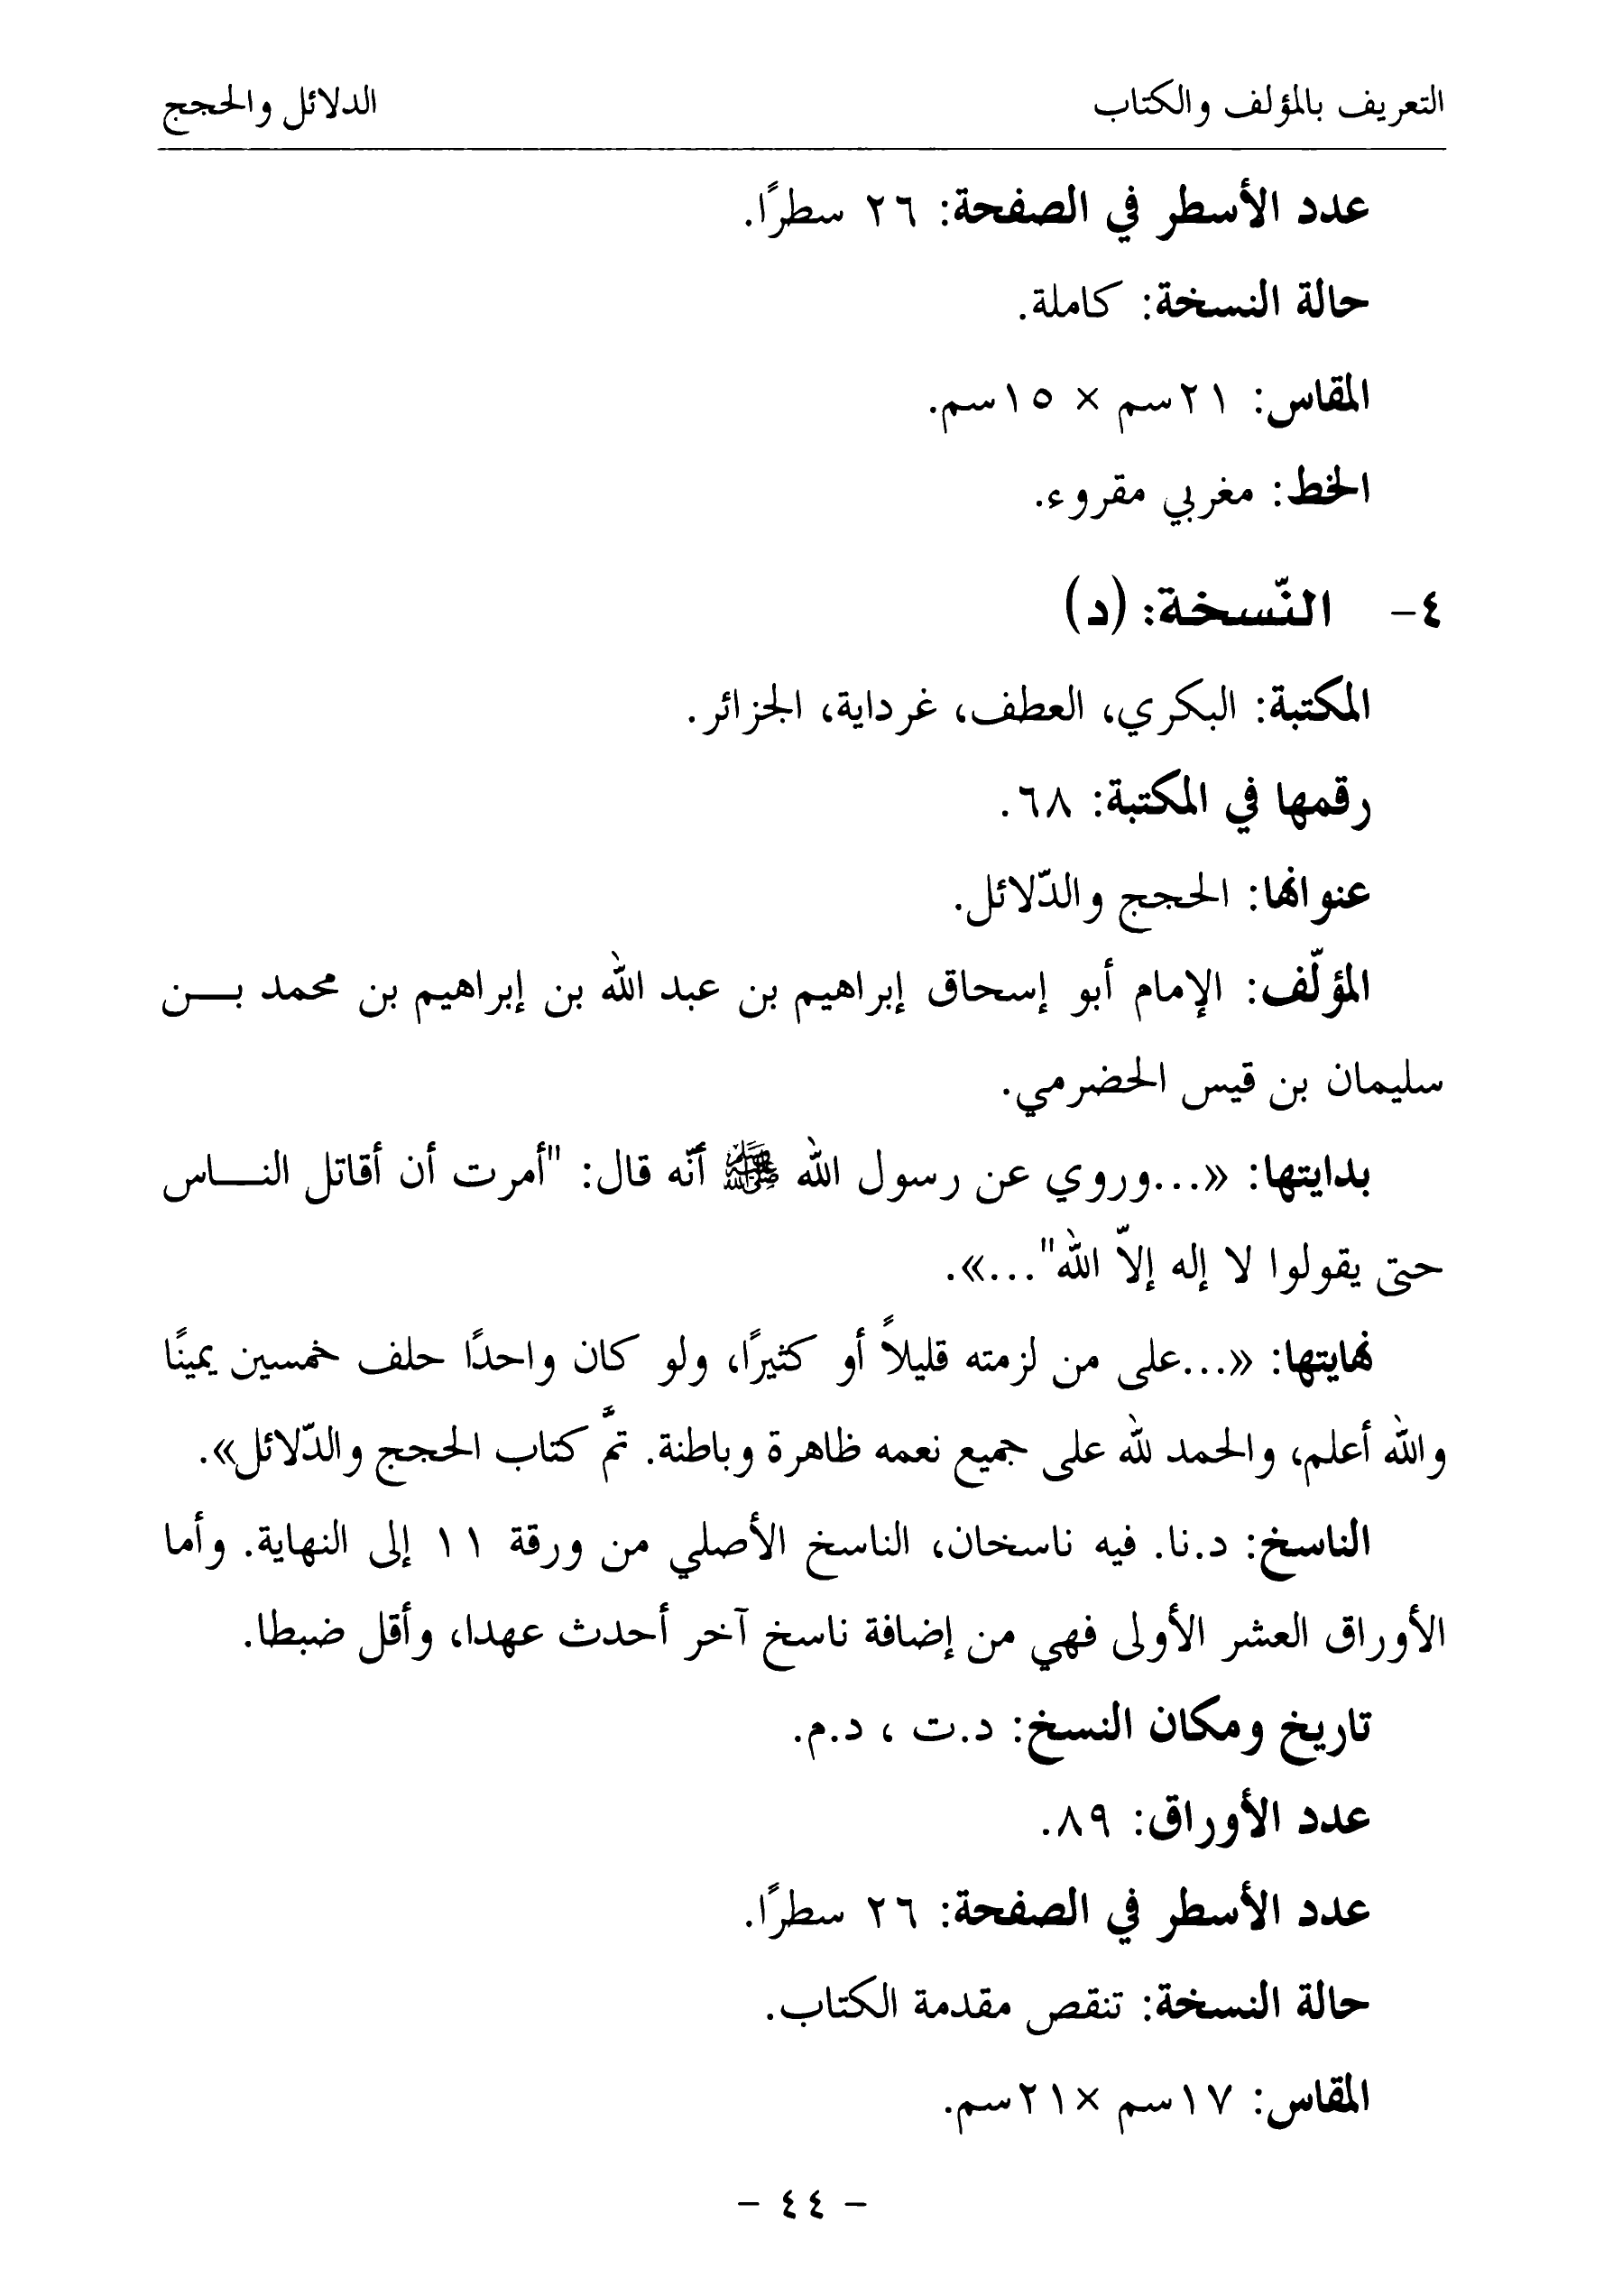 التعريف بالمؤلف والكتاب
الدلائل والحجج
عدد الأسطر في الصفحة: ٢٦ سطرًا.
حالة النسخة: كاملة.
المقاس: ٢١سم × ١٥سم.
الخط: مغربي مقروء.
٤- النّسخة: (د)
المكتبة: البكري، العطف، غرداية، الجزائر.
رقمها في المكتبة: ٦٨.
عنوانها: الحجج والدّلائل.
المؤلّف: الإمام أبو إسحاق إبراهيم بن عبد الله بن إبراهيم بن محمد بـــن
سليمان بن قيس الحضرمي.
بدايتها: «...وروي عن رسول الله ﷺ أنّه قال: "أمرت أن أقاتل النـــاس
حتى يقولوا لا إله إلاّ الله"...».
نهايتها: «...على من لزمته قليلاً أو كثيرًا، ولو كان واحدًا حلف خمسين يمينًا
والله أعلم، والحمد لله على جميع نعمه ظاهرة وباطنة. تمَّ كتاب الحجج والدّلائل».
الناسخ: د.نا. فيه ناسخان، الناسخ الأصلي من ورقة ١١ إلى النهاية. وأما
الأوراق العشر الأولى فهي من إضافة ناسخ آخر أحدث عهدا، وأقل ضبطا.
تاريخ ومكان النسخ: د.ت ، د.م.
عدد الأوراق: ٨٩.
عدد الأسطر في الصفحة: ٢٦ سطرًا.
حالة النسخة: تنقص مقدمة الكتاب.
المقاس: ١٧سم ×٢١سم.
- ٤٤ -